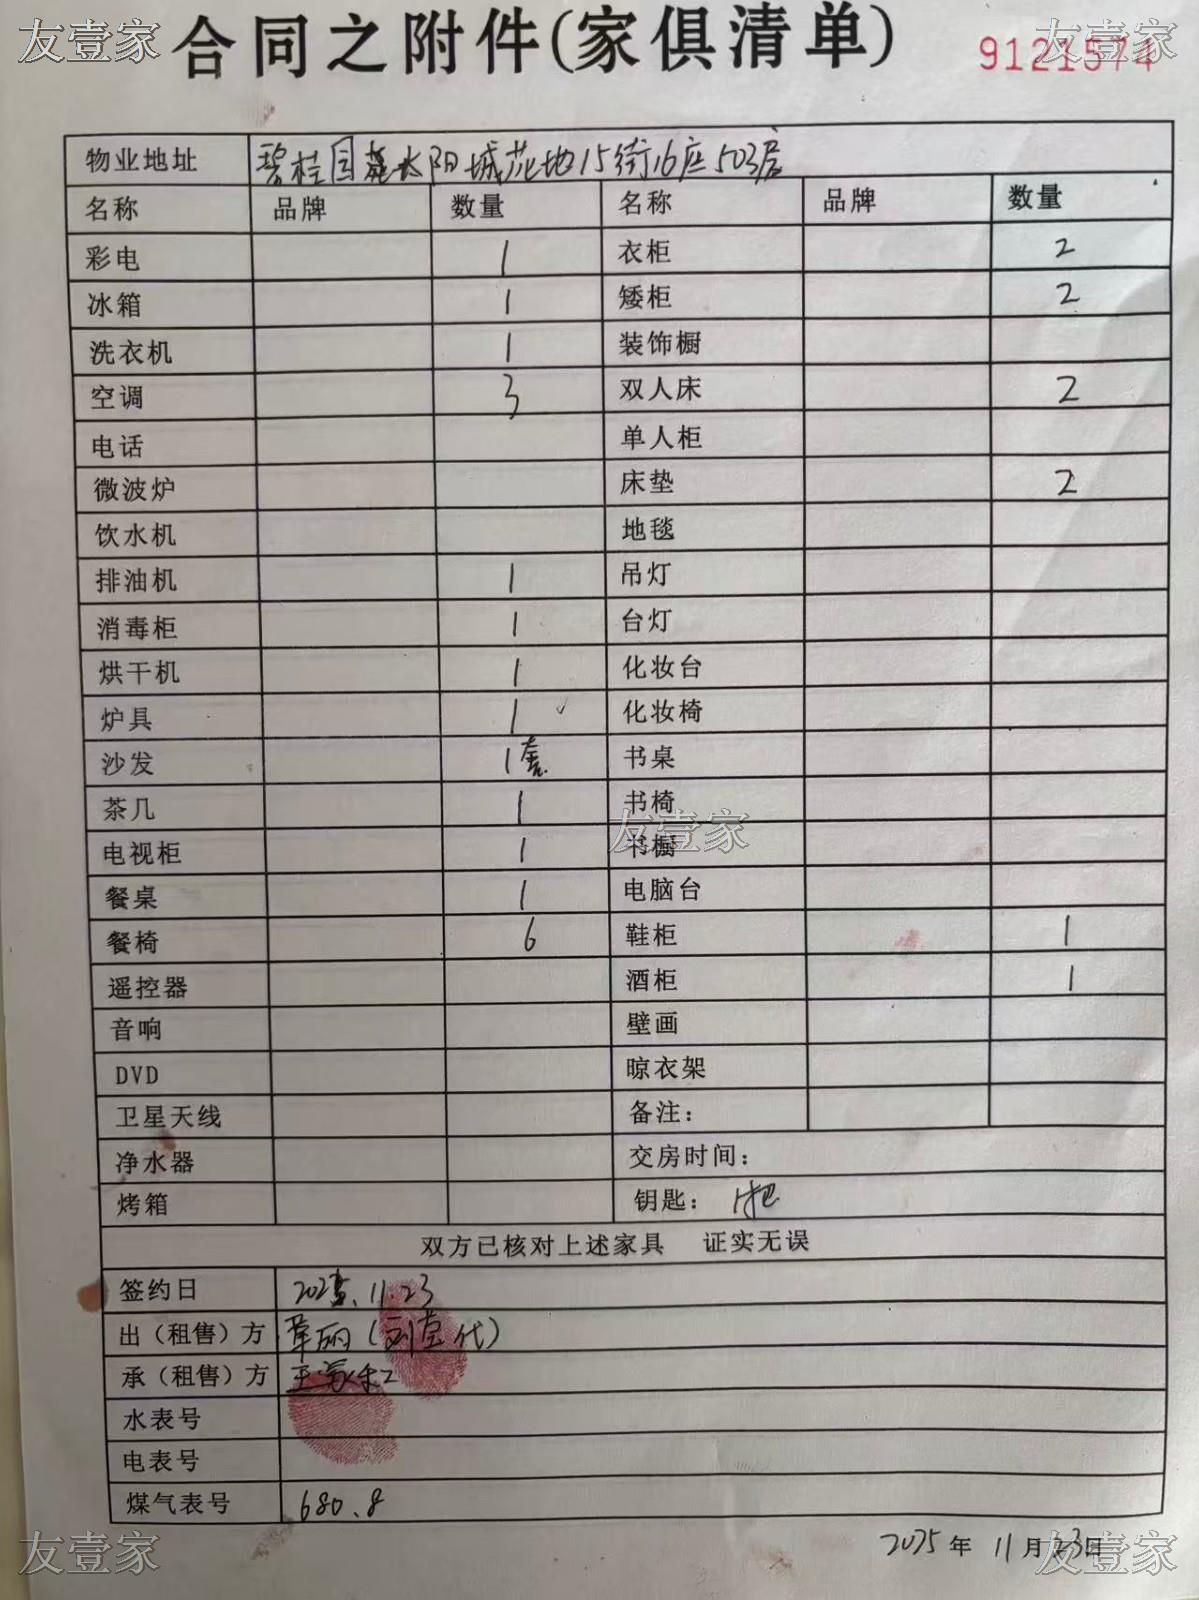 友壹家 友壹家
合同之附件(家俱清单) 9121574
物业地址 碧桂园 太阳城花地15街16座503房
名称 品牌 数量 名称 品牌 数量
彩电 1 衣柜 2
冰箱 1 矮柜 2
洗衣机 1 装饰橱
空调 3 双人床 2
电话 单人柜
微波炉 床垫 2
饮水机 地毯
排油机 1 吊灯
消毒柜 1 台灯
烘干机 1 化妆台
炉具 1 ✓ 化妆椅
沙发 1套 书桌
茶几 1 书椅
友壹家
电视柜 1 书橱
餐桌 1 电脑台
餐椅 6 鞋柜 1
遥控器 酒柜 1
音响 壁画
DVD 晾衣架
卫星天线 备注:
净水器 交房时间:
烤箱 钥匙: 1把
双方已核对上述家具 证实无误
签约日 2025.11.23
出（租售）方
承（租售）方
水表号
电表号
煤气表号 680.8
2025年 11月23日
友壹家 友壹家